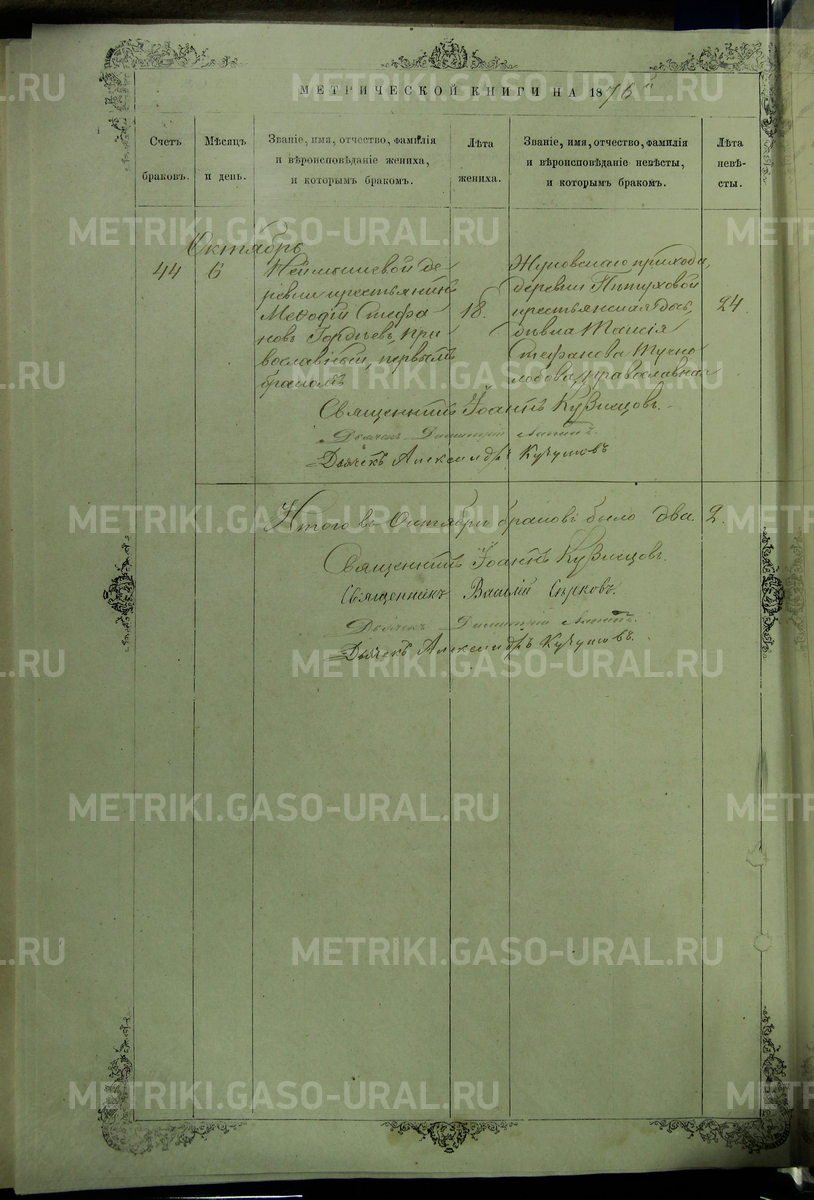 МЕТРИЧЕСКОЙ КНИГИ НА 1876
Счетъ браковъ.
Мѣсяцъ и день.
Званіе, имя, отчество, фамилія
и вѣроисповѣданіе жениха,
и которымъ бракомъ.
Лѣта
жениха.
Званіе, имя, отчество, фамилія
и вѣроисповѣданіе невѣсты,
и которымъ бракомъ.
Лѣта
невѣ-
сты.
Октябрь
44
6
Неймышевой де-
ревни крестьянинъ
Меѳодій Стефа
новъ Гордѣевъ, пра
вославный, первымъ
бракомъ
18.
Жуковскаго прихода,
деревни Пѣтуховой
крестьянская дочь,
дѣвица Таисія
Стефанова Тучно
лобова, православная
24
Священникъ Іоаннъ Кузнецовъ.
Дьячекъ Димитрій
Дьячекъ Александръ
Итого въ Октябрѣ браковъ было два. 2.
Священникъ Іоаннъ Кузнецовъ.
Священникъ Василій Сырковъ.
Дьячекъ Димитрій
Дьячекъ Александръ
METRIKI.GASO-URAL.RU